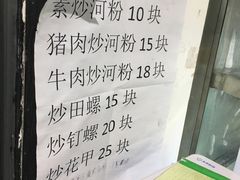 素炒河粉 10 块
猪肉炒河粉 15 块
牛肉炒河粉 18 块
炒田螺 15 块
炒钉螺 20 块
炒花甲 25 块